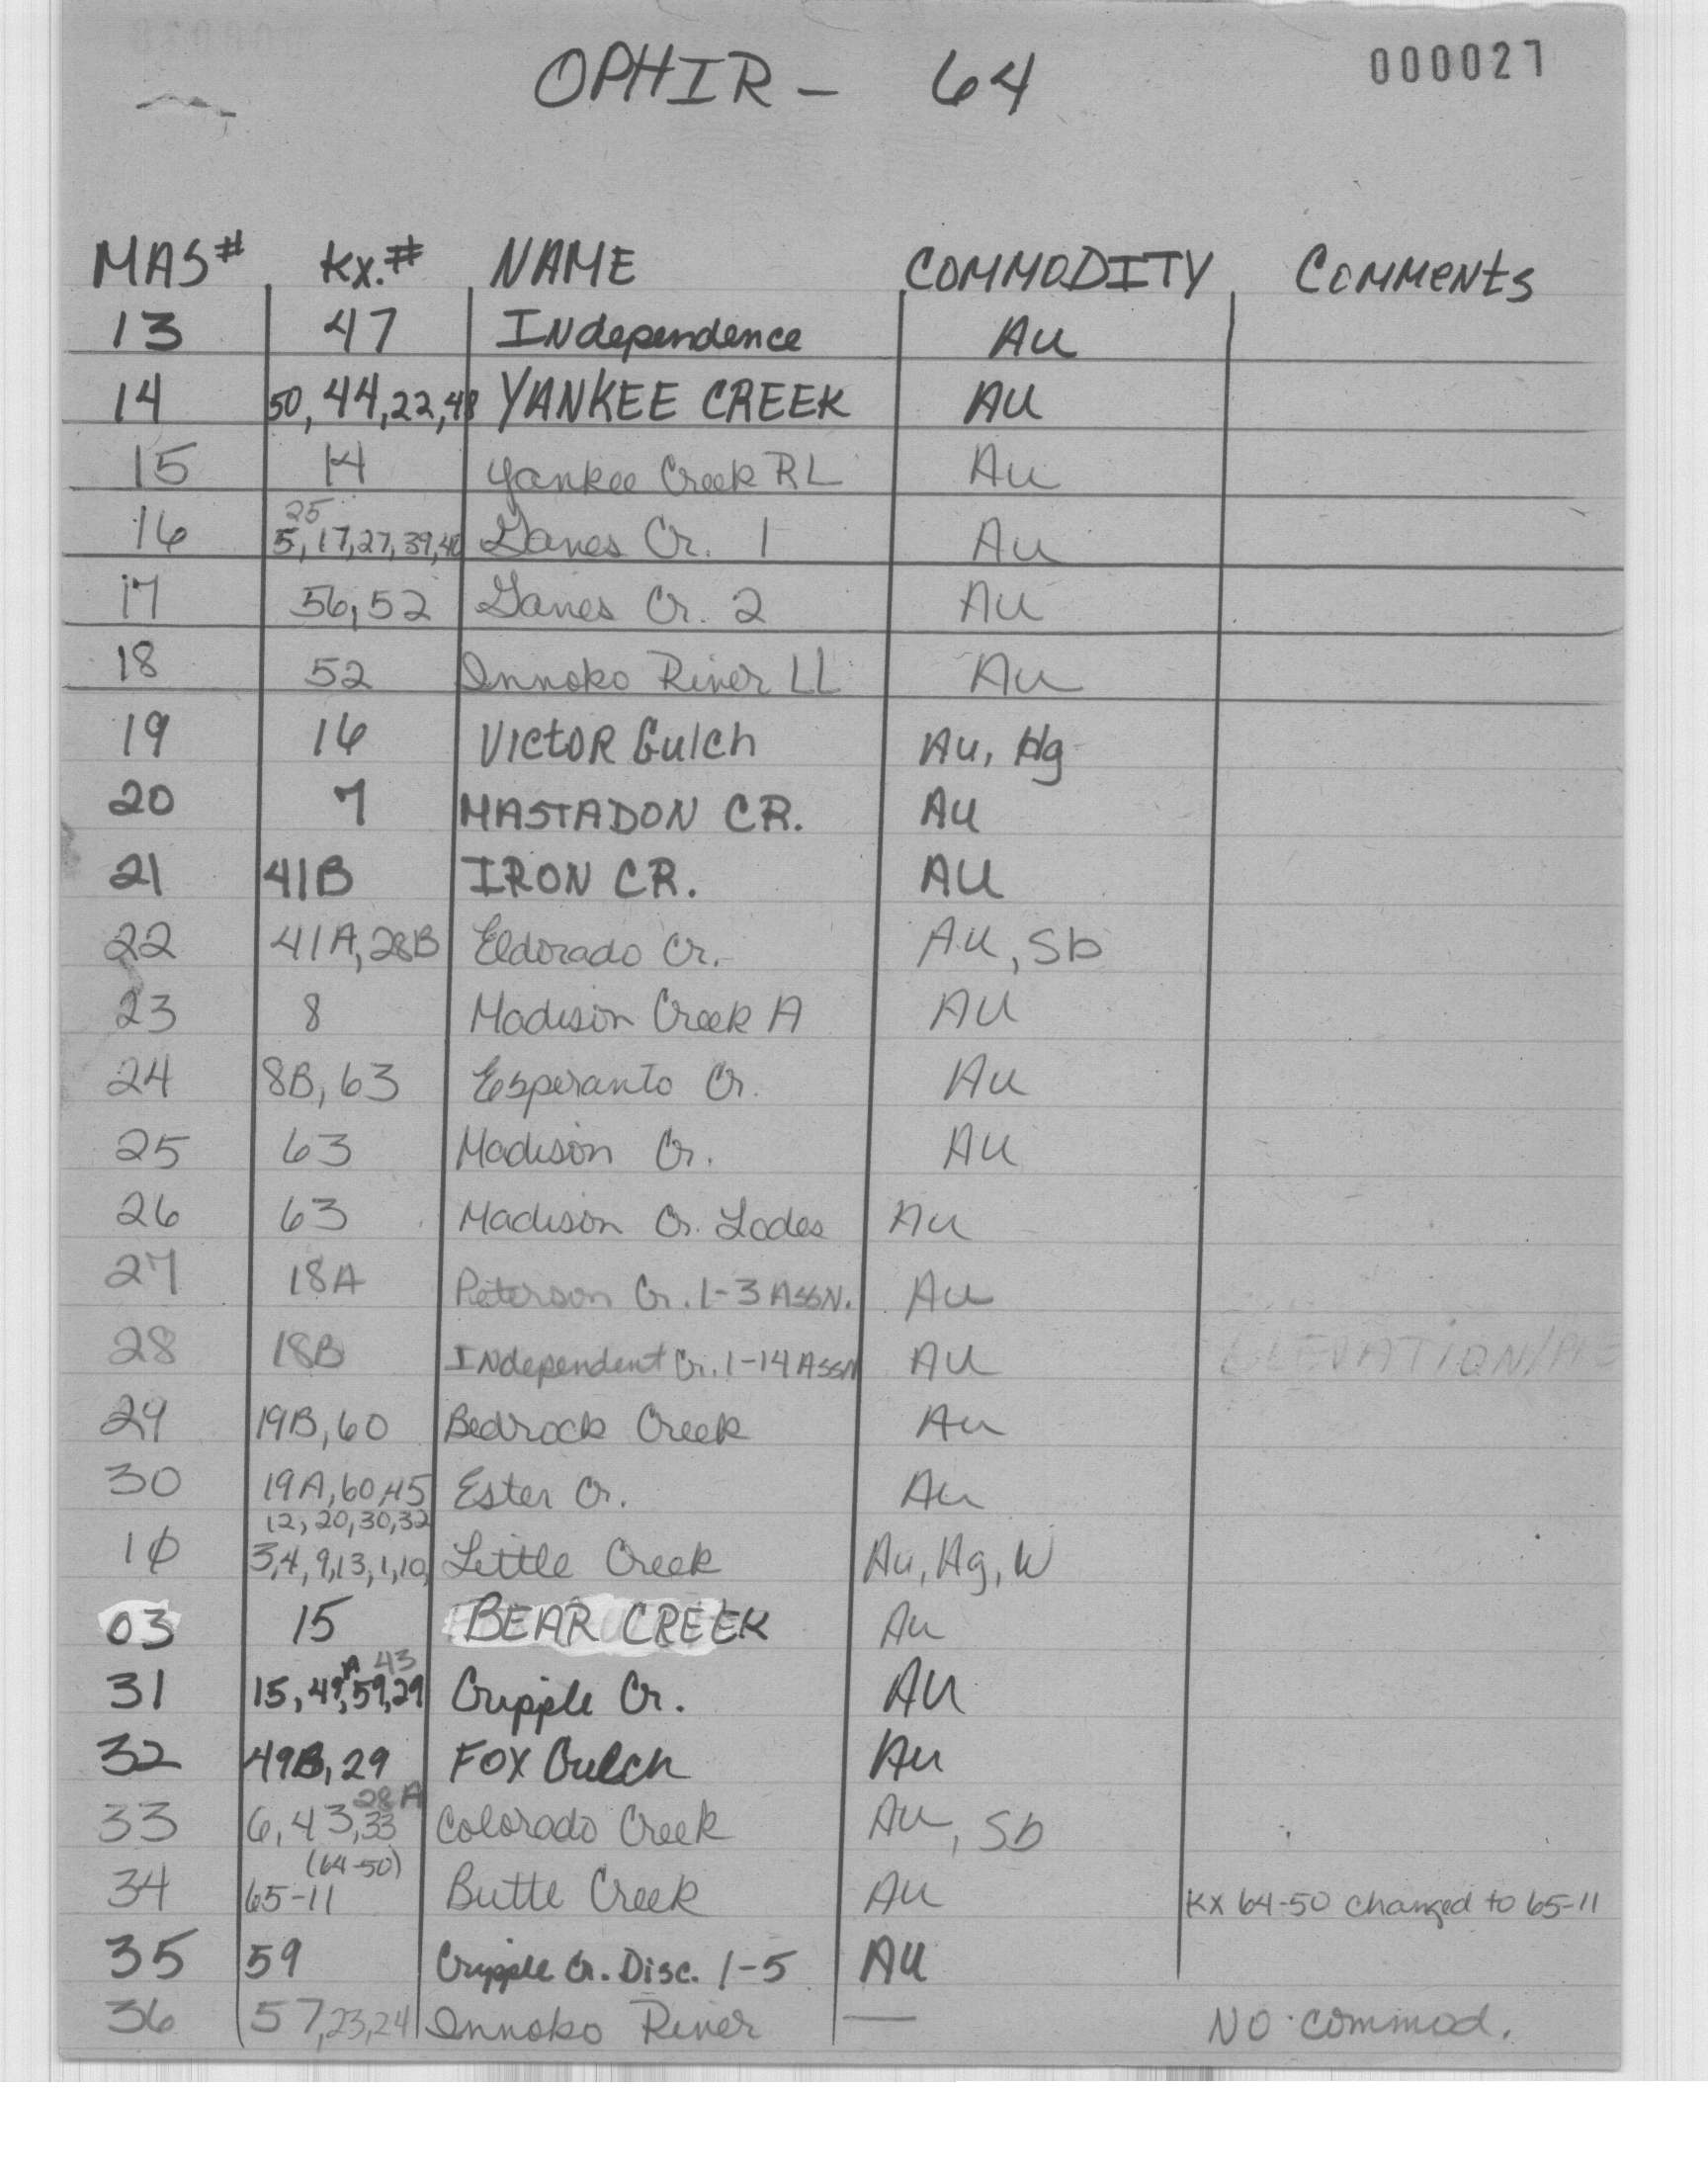 OPHIR - 64 000027
MAS# Kx.# NAME COMMODITY Comments
13 47 Independence Au
14 50, 44, 22, 48 YANKEE CREEK AU
15 14 Yankee Creek RL Au
25
16 5, 17, 27, 39, 40 Ganes Cr. 1 Au
17 56, 52 Ganes Cr. 2 Au
18 52 Innoko River LL Au
19 16 Victor Gulch Au, Hg
20 7 MASTADON CR. Au
21 41B IRON CR. AU
22 41A, 28B Eldorado Cr. Au, Sb
23 8 Madison Creek A AU
24 8B, 63 Esperanto Cr. Au
25 63 Madison Cr. Au
26 63 Madison Cr. Lodes Au
27 18A Peterson Cr. 1-3 ASSN. Au
28 18B Independent Cr. 1-14 Assn AU
29 19B, 60 Bedrock Creek Au
30 19A, 60, 45 Ester Cr. Au
12, 20, 30, 32
10 3, 4, 9, 13, 1, 10, Little Creek Au, Hg, W
03 15 BEAR CREEK Au
A 43
31 15, 49, 59, 29 Cripple Cr. AU
32 49B, 29 FOX Gulch Au
28A
33 6, 43, 33 Colorado Creek Au, Sb
(64-50)
34 65-11 Butte Creek Au KX 64-50 changed to 65-11
35 59 Cripple Cr. Disc. 1-5 AU
36 57, 23, 24 Innoko River — NO commod.